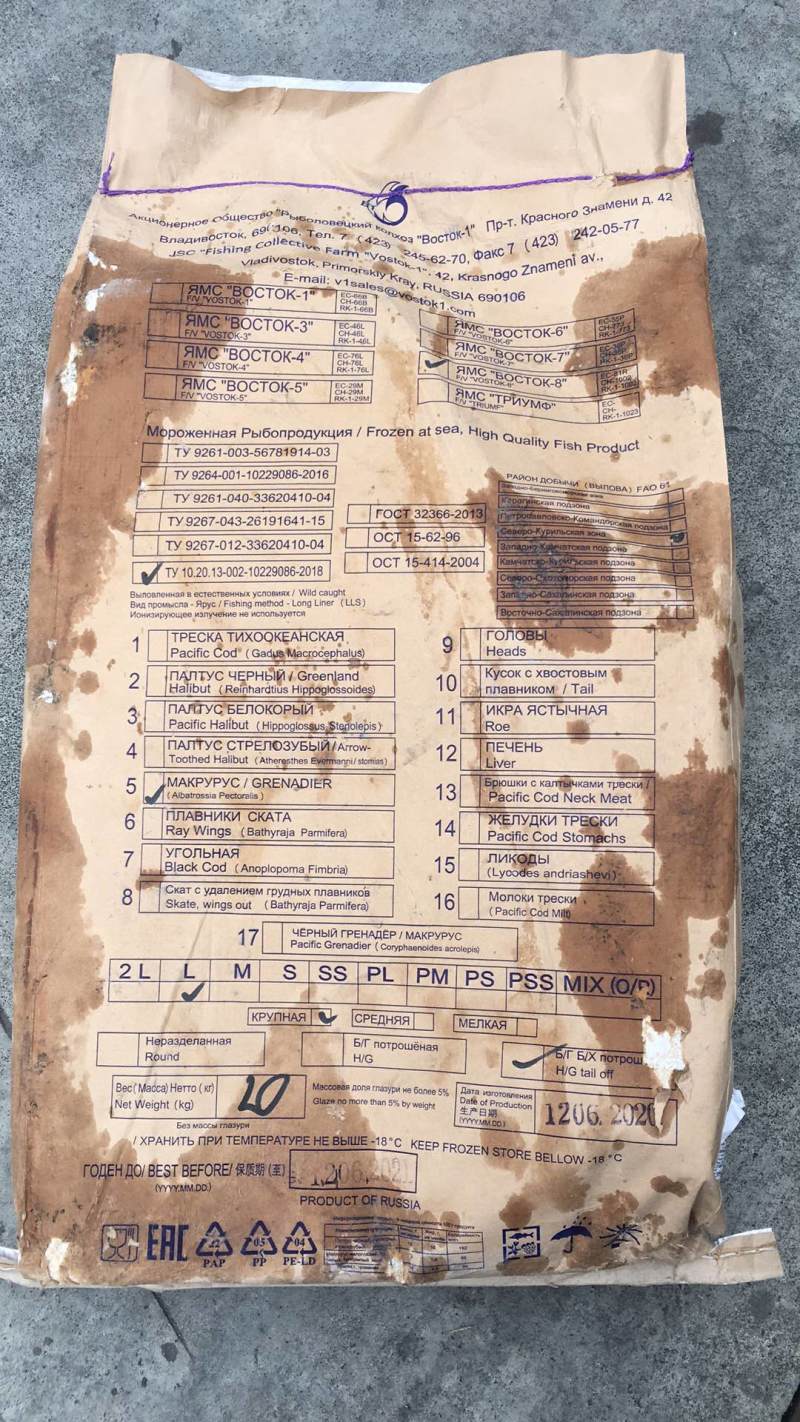 Акционерное Общество "Рыболовецкий колхоз "Восток-1" Пр-т. Красного Знамени д. 42
Владивосток, 690106, Тел. 7 (423) 245-62-70, Факс 7 (423) 242-05-77
JSC "Fishing Collective Farm "Vostok-1". 42, Krasnogo Znameni av.,
Vladivostok, Primorskiy Kray, RUSSIA 690106
E-mail: v1sales@vostok1.com
ЯМС "ВОСТОК-1"
F/V "VOSTOK-1"
EC-66B
CH-66B
RK-1-66B
ЯМС "ВОСТОК-3"
F/V "VOSTOK-3"
EC-46L
CH-46L
RK-1-46L
ЯМС "ВОСТОК-4"
F/V "VOSTOK-4"
EC-76L
CH-76L
RK-1-76L
ЯМС "ВОСТОК-5"
F/V "VOSTOK-5"
EC-29M
CH-29M
RK-1-29M
ЯМС "ВОСТОК-6"
F/V "VOSTOK-6"
ЯМС "ВОСТОК-7"
F/V "VOSTOK-7"
ЯМС "ВОСТОК-8"
F/V "VOSTOK-8"
ЯМС "ТРИУМФ"
F/V "TRIUMF"
EC-
CH-
RK-1-1023
Мороженная Рыбопродукция / Frozen at sea, High Quality Fish Product
ТУ 9261-003-56781914-03
ТУ 9264-001-10229086-2016
ТУ 9261-040-33620410-04
ТУ 9267-043-26191641-15
ТУ 9267-012-33620410-04
ТУ 10.20.13-002-10229086-2018
ГОСТ 32366-2013
ОСТ 15-62-96
ОСТ 15-414-2004
РАЙОН ДОБЫЧИ (ВЫЛОВА) FAO 61
Карагинская подзона
Петропавловско-Командорская подзона
Северо-Курильская зона
Западно-Камчатская подзона
Камчатско-Курильская подзона
Северо-Охотоморская подзона
Западно-Сахалинская подзона
Восточно-Сахалинская подзона
Выловленная в естественных условиях / Wild caught
Вид промысла - Ярус / Fishing method - Long Liner (LLS)
Ионизирующее излучение не используется
1 ТРЕСКА ТИХООКЕАНСКАЯ
Pacific Cod (Gadus Macrocephalus)
2 ПАЛТУС ЧЕРНЫЙ / Greenland
Halibut (Reinhardtius Hippoglossoides)
3 ПАЛТУС БЕЛОКОРЫЙ
Pacific Halibut (Hippoglossus Stenolepis)
4 ПАЛТУС СТРЕЛОЗУБЫЙ/Arrow-
Toothed Halibut (Atheresthes Evermanni/stomias)
5 МАКРУРУС / GRENADIER
(Albatrossia Pectoralis)
6 ПЛАВНИКИ СКАТА
Ray Wings (Bathyraja Parmifera)
7 УГОЛЬНАЯ
Black Cod (Anoplopoma Fimbria)
8 Скат с удалением грудных плавников
Skate, wings out (Bathyraja Parmifera)
9 ГОЛОВЫ
Heads
10 Кусок с хвостовым
плавником / Tail
11 ИКРА ЯСТЫЧНАЯ
Roe
12 ПЕЧЕНЬ
Liver
13 Брюшки с калтычками трески /
Pacific Cod Neck Meat
14 ЖЕЛУДКИ ТРЕСКИ
Pacific Cod Stomachs
15 ЛИКОДЫ
(Lycodes andriashevi)
16 Молоки трески
(Pacific Cod Milt)
17 ЧЁРНЫЙ ГРЕНАДЁР / МАКРУРУС
Pacific Grenadier (Coryphaenoides acrolepis)
2L L M S SS PL PM PS PSS MIX (O/P)
КРУПНАЯ СРЕДНЯЯ МЕЛКАЯ
Неразделанная
Round
Б/Г потрошёная
H/G
Б/Г Б/Х потрош
H/G tail off
Вес (Масса) Нетто (кг)
Net Weight (kg)
20
Без массы глазури
Массовая доля глазури не более 5%
Glaze no more than 5% by weight
Дата изготовления
Date of Production
生产日期
(YYYY.MM.DD.)
1206. 2020.
/ ХРАНИТЬ ПРИ ТЕМПЕРАТУРЕ НЕ ВЫШЕ -18°C KEEP FROZEN STORE BELLOW -18 °C
ГОДЕН ДО/ BEST BEFORE/ 保质期 (至)
(YYYY.MM.DD.)
1206.2021
PRODUCT OF RUSSIA
EAC
42
PAP
05
PP
04
PE-LD